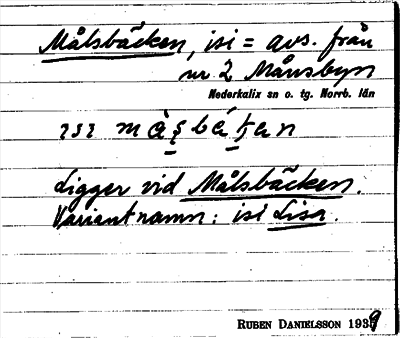 Målsbäcken, isi = avs. från
nr 2 Månsbyn
Nederkalix sn o. tg. Norrb. län
ısı
Ligger vid Målsbäcken.
Variantnamn: isi Lisa.
RUBEN DANIELSSON 1939